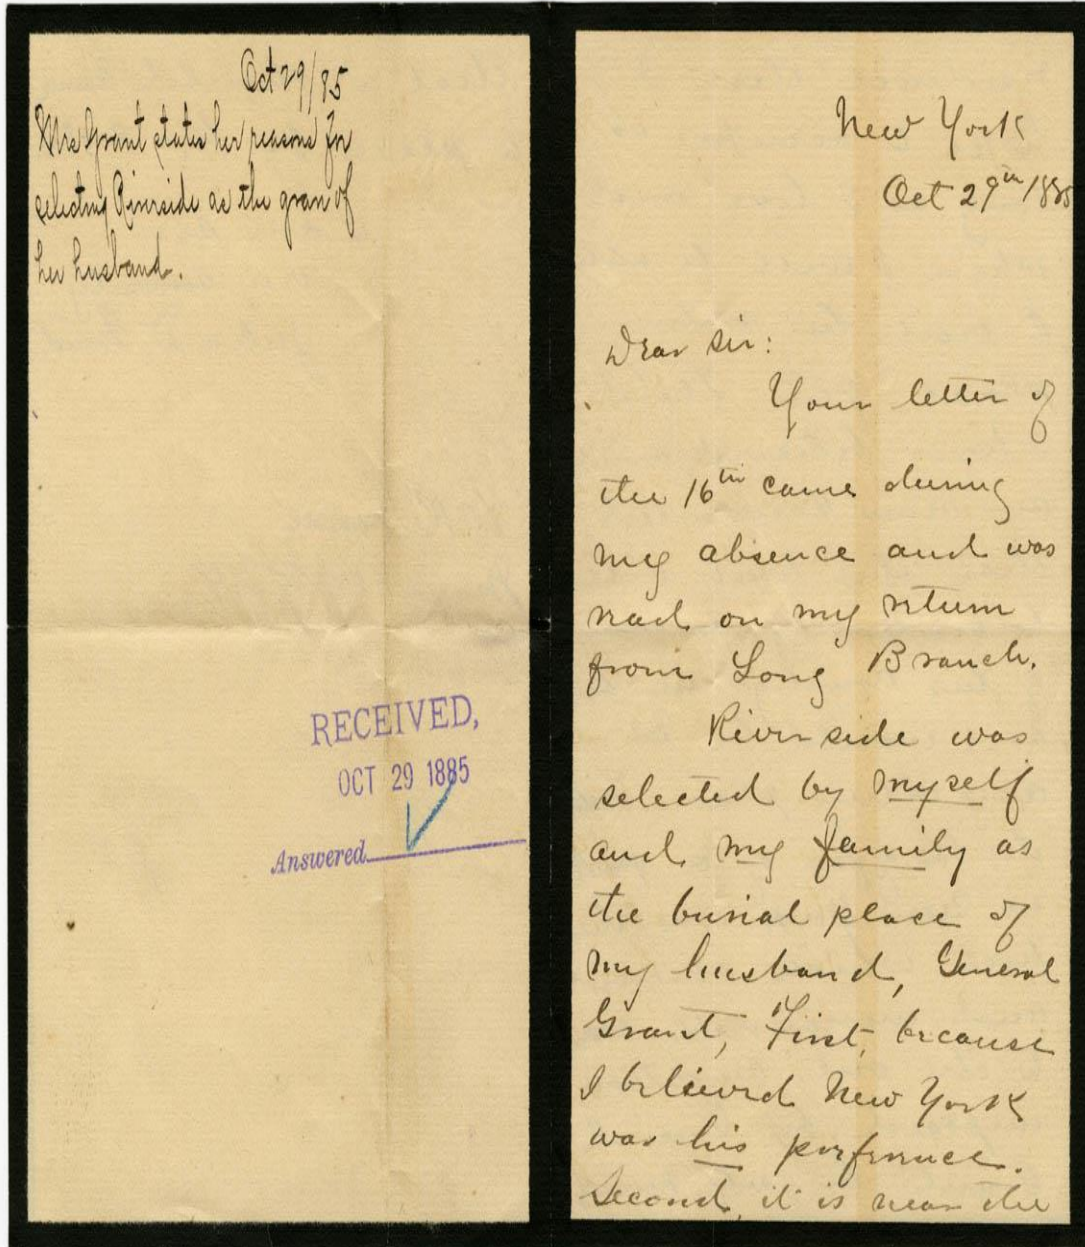 Oct 29/85
Mrs Grant states her reasons for
selecting Riverside as the grave of
her husband.
RECEIVED,
OCT 29 1885
Answered
New York
Oct 29th 1885
Dear Sir:
Your letter of
the 16th came during
my absence and was
read on my return
from Long Branch.
Riverside was
selected by myself
and my family as
the burial place of
my husband, General
Grant, First, because
I believed New York
was his preference.
Second, it is near the